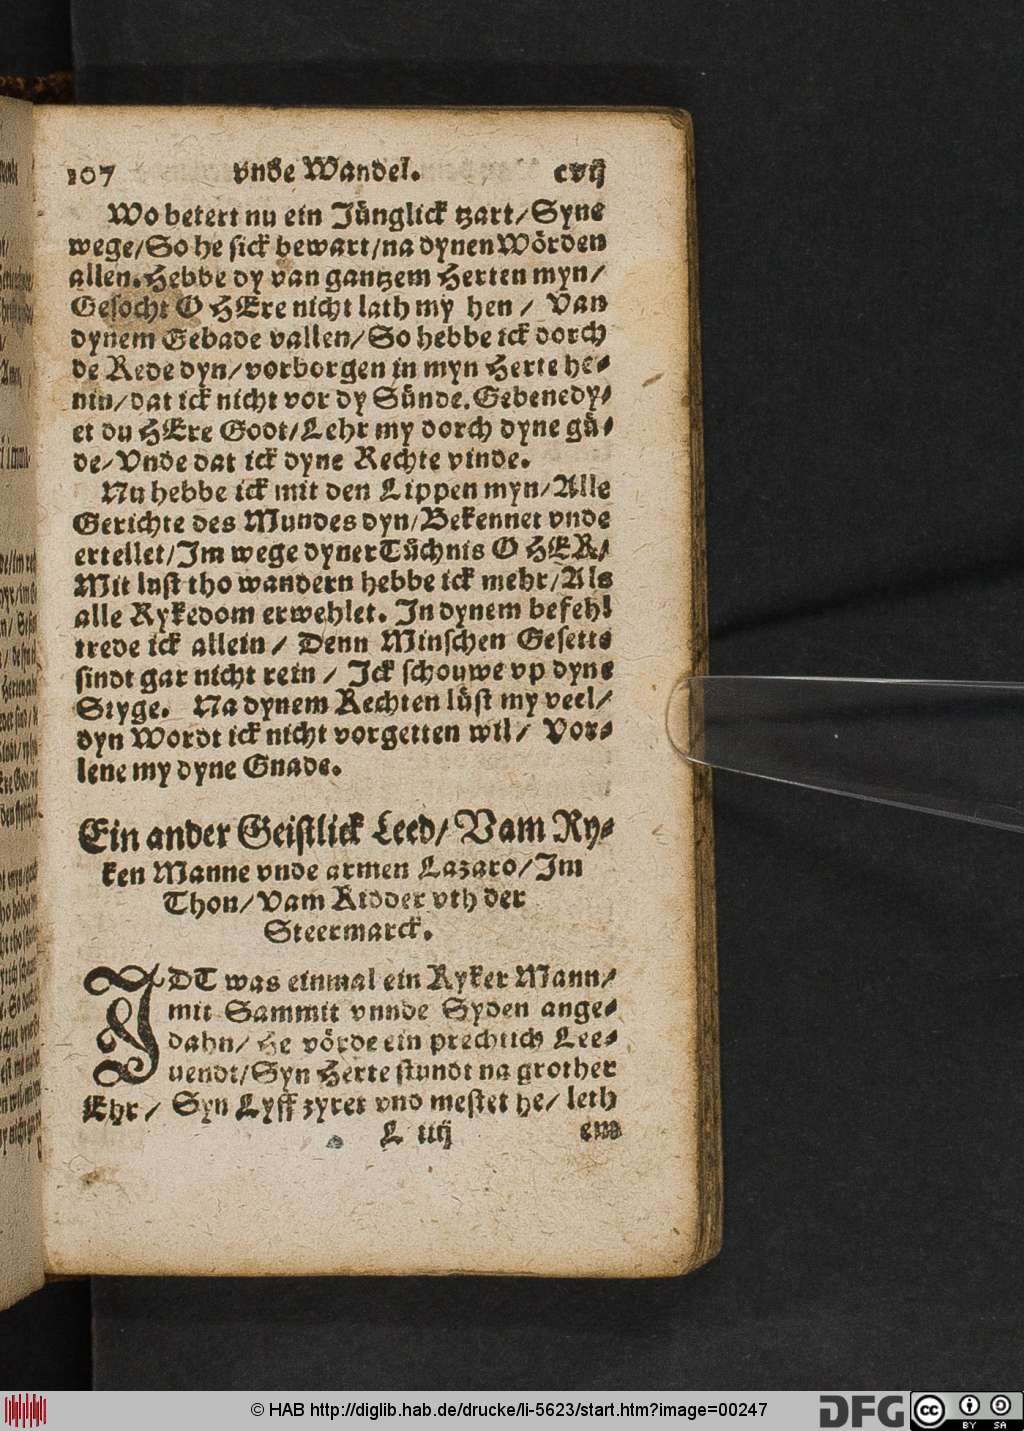 107 vnde Wandel. cvij
Wo betert nu ein Jüngklick tzart/Syne
wege/So he sick bewart/na dynen Wörden
allen. Hebbe dy van gantzem Herten myn/
Gesocht O HEre nicht lath my hen / Van
dynem Gebade vallen/So hebbe ick dorch
de Rede dyn/vorborgen in myn Herte he-
nin/dat ick nicht vor dy Sünde. Gebenedy-
et du HEre Goot/Lehr my dorch dyne gü-
de/Vnde dat ick dyne Rechte vinde.
Nu hebbe ick mit den Lippen myn/Alle
Gerichte des Mundes dyn/Bekennet vnde
ertellet/Im wege dyner Tüchnis O HER/
Mit lust tho wandern hebbe ick mehr/Als
alle Rykedom erwehlet. In dynem befehl
trede ick allein / Denn Minschen Gesette
sindt gar nicht rein / Ick schouwe vp dyne
Styge. Na dynem Rechten lüst my veel/
dyn Wordt ick nicht vorgetten wil/ Vor-
lene my dyne Gnade.
Ein ander Geistlick Leed/ Vam Ry-
ken Manne vnde armen Lazaro/Im
Thon/Vam Ridder vth der
Steermarck.
IDT was einmal ein Ryker Mann/
mit Sammit vnnde Syden ange-
dahn/ He vörde ein prechtich Lee-
uendt/Syn Herte stundt na grother
Ehr/ Syn Lyff zyret vnd mestet he/ leth
L iiij em
© HAB http://diglib.hab.de/drucke/li-5623/start.htm?image=00247
DFG
cc BY SA